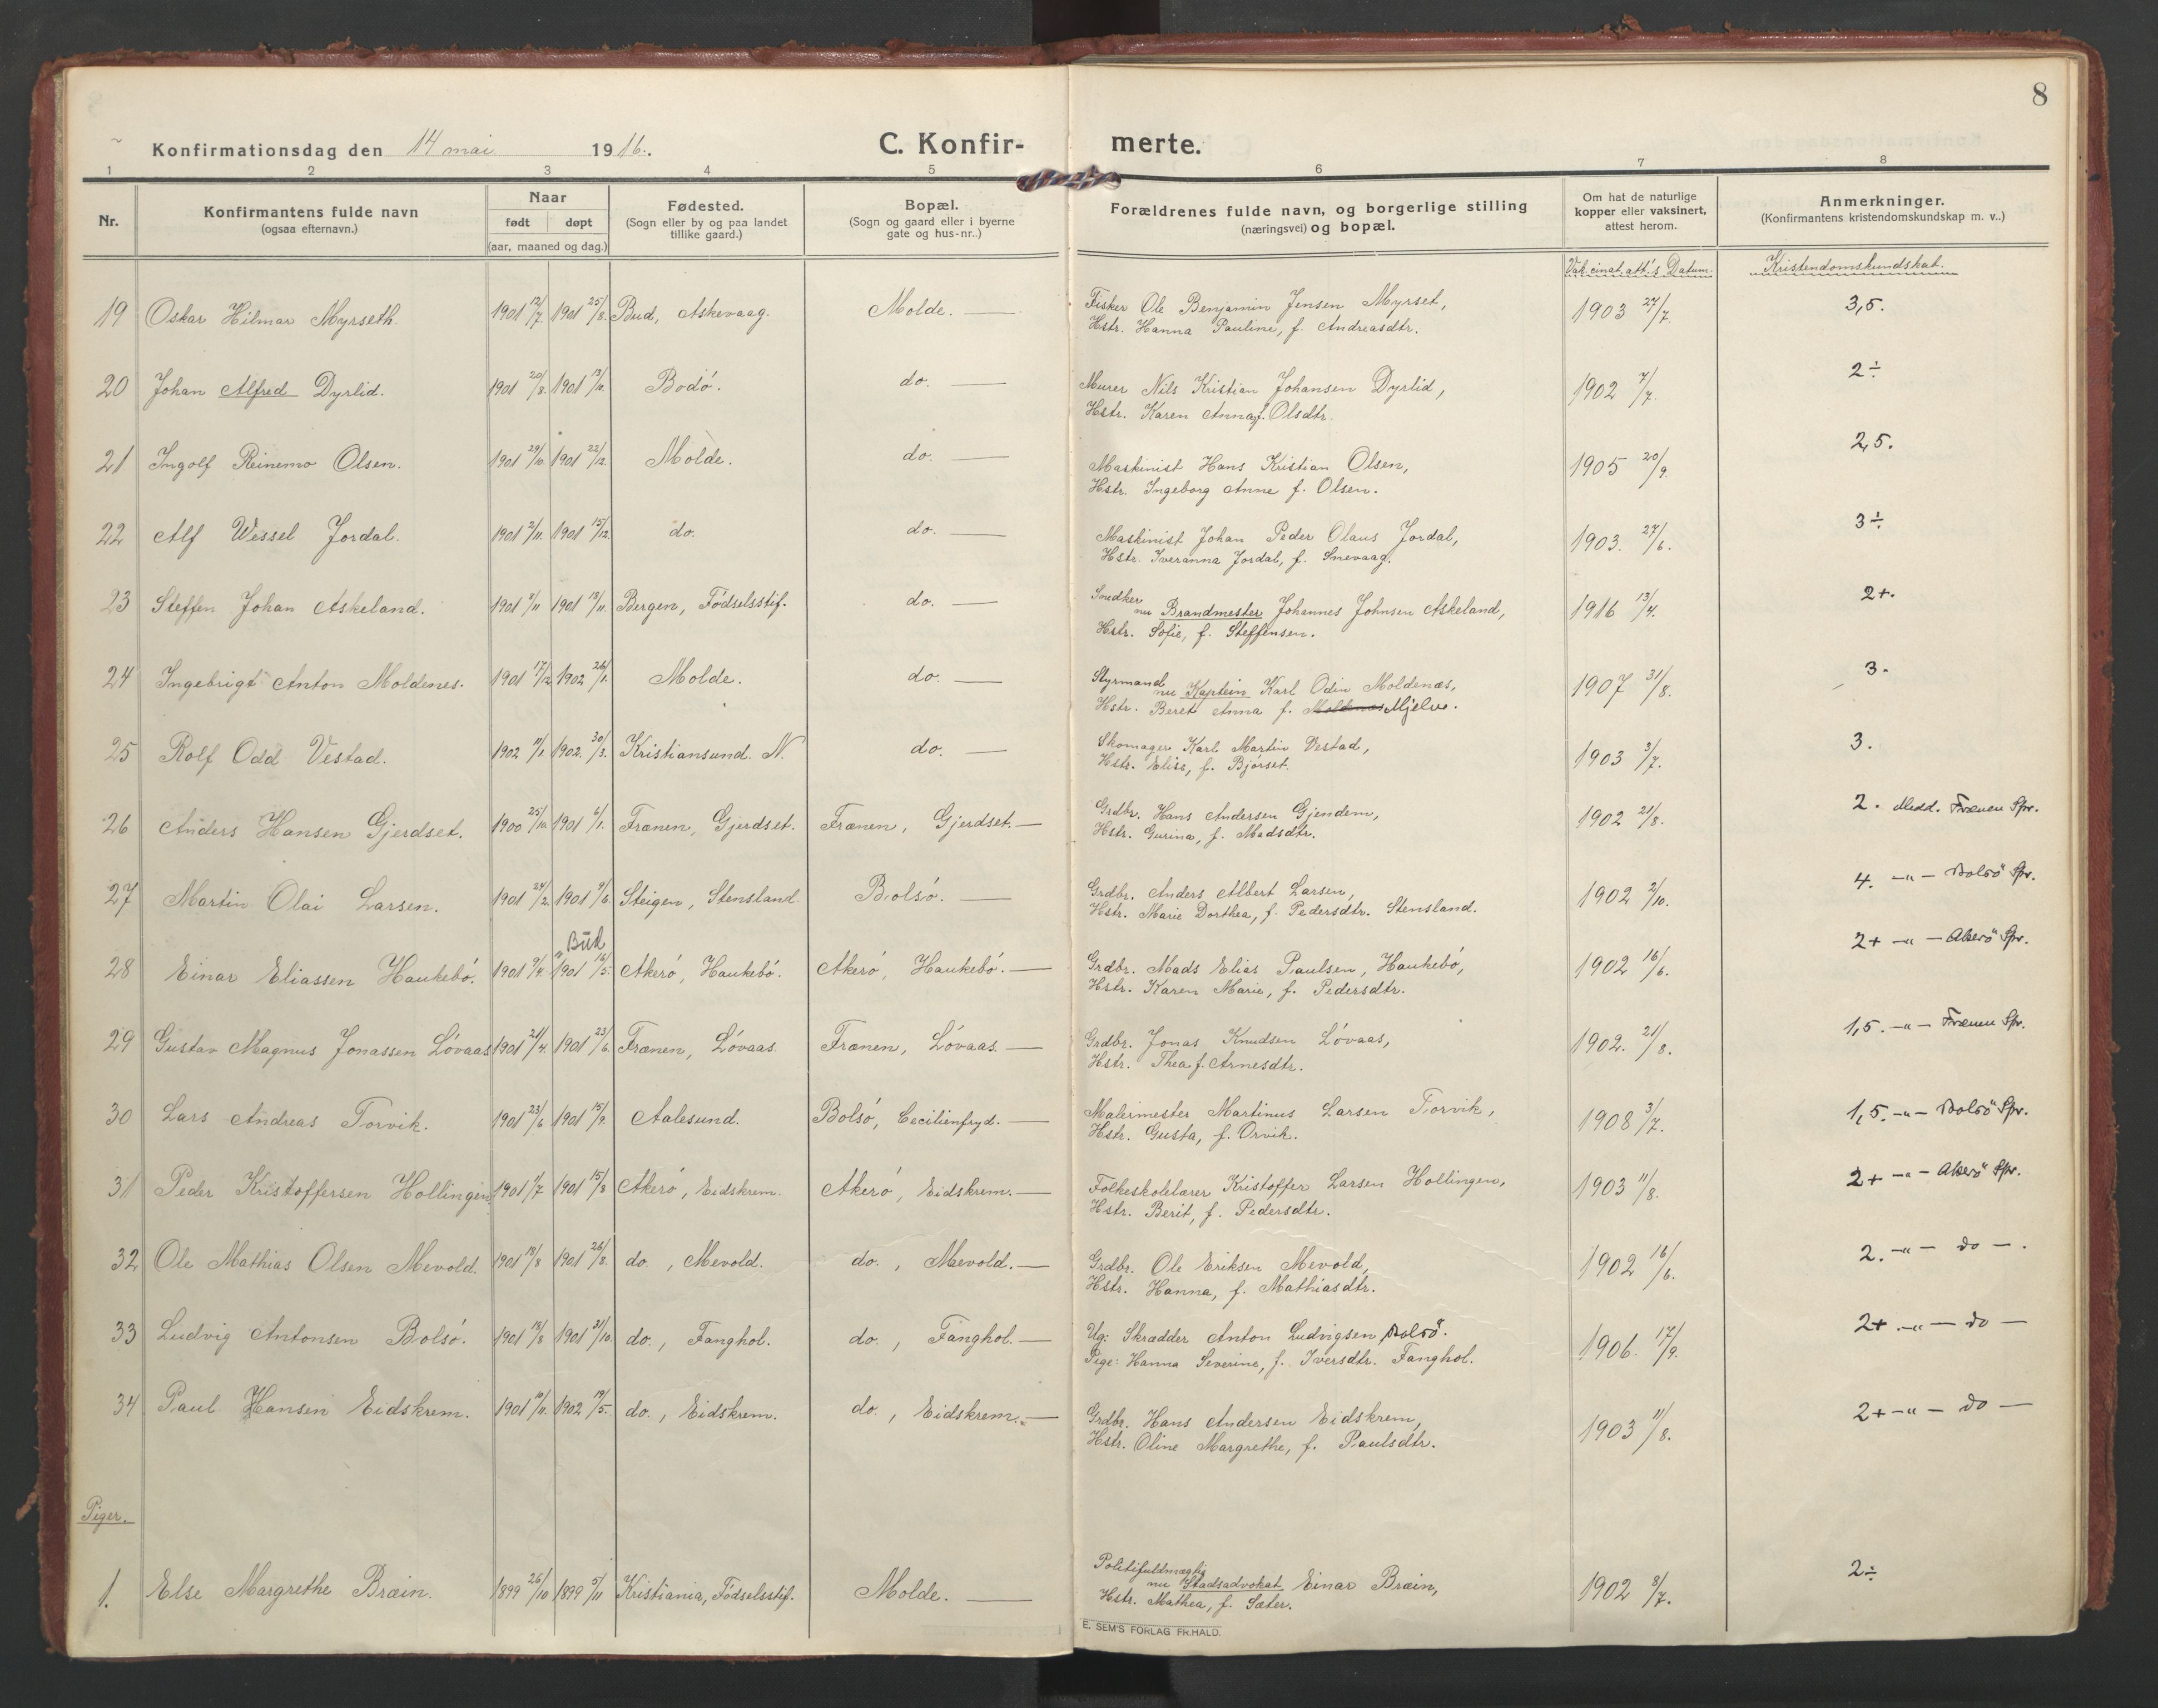 8
Konfirmationsdag den 14 mai 1916.
C. Konfir- merte.
1 2 3 4 5 6 7 8
Nr.
Konfirmantens fulde navn
(ogsaa efternavn.)
Naar
født døpt
(aar, maaned og dag.)
Fødested.
(Sogn eller by og paa landet
tillike gaard.)
Bopæl.
(Sogn og gaard eller i byerne
gate og hus-nr..)
Forældrenes fulde navn, og borgerlige stilling
(næringsvei) og bopæl.
Om hat de naturlige
kopper eller vaksinert,
attest herom.
Anmerkninger.
(Konfirmantens kristendomskundskap m. v..)
Vakcinat. att's Datum. Kristendomskundskab.
19 Oskar Hilmar Myrseth. 1901 12/7 1901 25/8. Bud, Askevaag. Molde. — Fisker Ole Benjamin Jensen Myrset, 1903 27/7. 3,5.
Hstr. Hanna Pauline, f. Andreasdtr.
20 Johan Alfred Dyrlid. 1901 20/8. 1901 13/10. Bodó. do. — Murer Nils Kristian Johansen Dyrlid, 1902 7/7. 2÷
Hstr. Karen Anna f. Olsdtr.
21 Ingolf Reinemo Olsen. 1901 29/10. 1901 22/12. Molde. do. — Maskinist Hans Kristian Olsen, 1905 20/9. 2,5.
Hstr. Ingeborg Anne f. Olsen.
22 Alf Wessel Jordal. 1901 2/11. 1901 15/12. do. do. — Maskinist Johan Peder Olaus Jordal, 1903. 27/6. 3÷
Hstr. Iveranna Jordal, f. Snevaag.
23 Steffen Johan Askeland. 1901 9/11 1901 18/11. Bergen, Fódselsstif. do. — Snedker
nu Brandmester Johannes Johnsen Askeland, 1916 13/4. 2+.
Hstr. Sofie, f. Steffensen.
24 Ingebrigt Anton Moldenes. 1901 17/12 1902 26/1. Molde. do. — Styrmand
nu Kaptein Karl Odin Moldenæs, 1907 31/8. 3.
Hstr. Beret Anna f. Moldenæs Mjelve.
25 Rolf Odd Vestad. 1902 11/1. 1902. 30/3. Kristiansund. N. do. — Skomager Karl Martin Vestad, 1903 3/7. 3.
Hstr. Elise, f. Bjórset.
26 Anders Hansen Gjerdset. 1900 25/10. 1901 6/1. Frænen, Gjerdset. Frænen, Gjerdset. — Grdbr. Hans Andersen Gjendem, 1902 21/8. 2. Medd. Frænen Spr.
Hstr. Gurina, f. Madsdtr.
27 Martin Olai Larsen. 1901 24/2. 1901 9/6. Steigen, Stensland. Bolsó. — Grdbr. Anders Albert Larsen, 1902 2/10. 4. —"— Bolsö Spr.
Hstr. Marie Dorthea, f. Pedersdtr. Stensland.
Bud
28 Einar Eliassen Haukebó. 1901 9/4. 1901 16/5. Akeró, Haukebó. Akeró, Haukebó. — Grdbr. Mads Elias Paulsen, Haukebó, 1902 16/6. 2+ —"— Akerö Spr.
Hstr. Karen Marie, f. Pedersdtr.
29 Gustav Magnus Jonassen Lóvaas 1901 21/4. 1901 23/6. Frænen, Lóvaas. Frænen, Lóvaas. — Grdbr. Jonas Knudsen Lóvaas, 1902. 21/8. 1,5. —"— Frænen Spr.
Hstr. Thea f. Arnesdtr.
30 Lars Andreas Torvik. 1901 23/6 1901 15/9. Aalesund. Bolsó, Cecilienfryd. — Malermester Martinus Larsen Torvik, 1908 3/7. 1,5. —"— Bolsö Spr.
Hstr. Gusta, f. Orvik.
31 Peder Kristoffersen Hollingen 1901 1/7 1901 15/8 Akeró, Eidskrem. Akeró, Eidskrem. — Folkeskolelærer Kristoffer Larsen Hollingen, 1903 11/8. 2+ —"— Akerö Spr.
Hstr. Berit, f. Pedersdtr.
32 Ole Mathias Olsen Mevold. 1901 18/8 1901 26/8. do., Mevold. do., Mevold. — Grdbr. Ole Eriksen Mevold, 1902 16/6. 2. —"— do —.
Hstr. Hanna, f. Mathiasdtr.
33 Ludvig Antonsen Bolsó. 1901 18/8 1901 31/10. do., Fanghol. do., Fanghol. — Ug: Skrædder Anton Ludvigsen Bolsö. 1906. 17/9. 2+ —"— do —
Pige: Hanna Severine, f. Iversdtr. Fanghol.
34 Paul Hansen Eidskrem. 1901 10/11. 1902 19/5. do., Eidskrem. do., Eidskrem. — Grdbr. Hans Andersen Eidskrem, 1903 11/8. 2+ —"— do —
Hstr. Oline Margrethe, f. Paulsdtr.
Piger.
1. Else Margrethe Bræin. 1899 26/10 1899 5/11 Kristiania, Fódselsstif. Molde. — Politifuldmægtig
nu Stadsadvokat Einar Bræin, 1902 8/7. 2÷
Hstr. Mathea, f. Sæter.
E. SEM'S FORLAG FR.HALD.